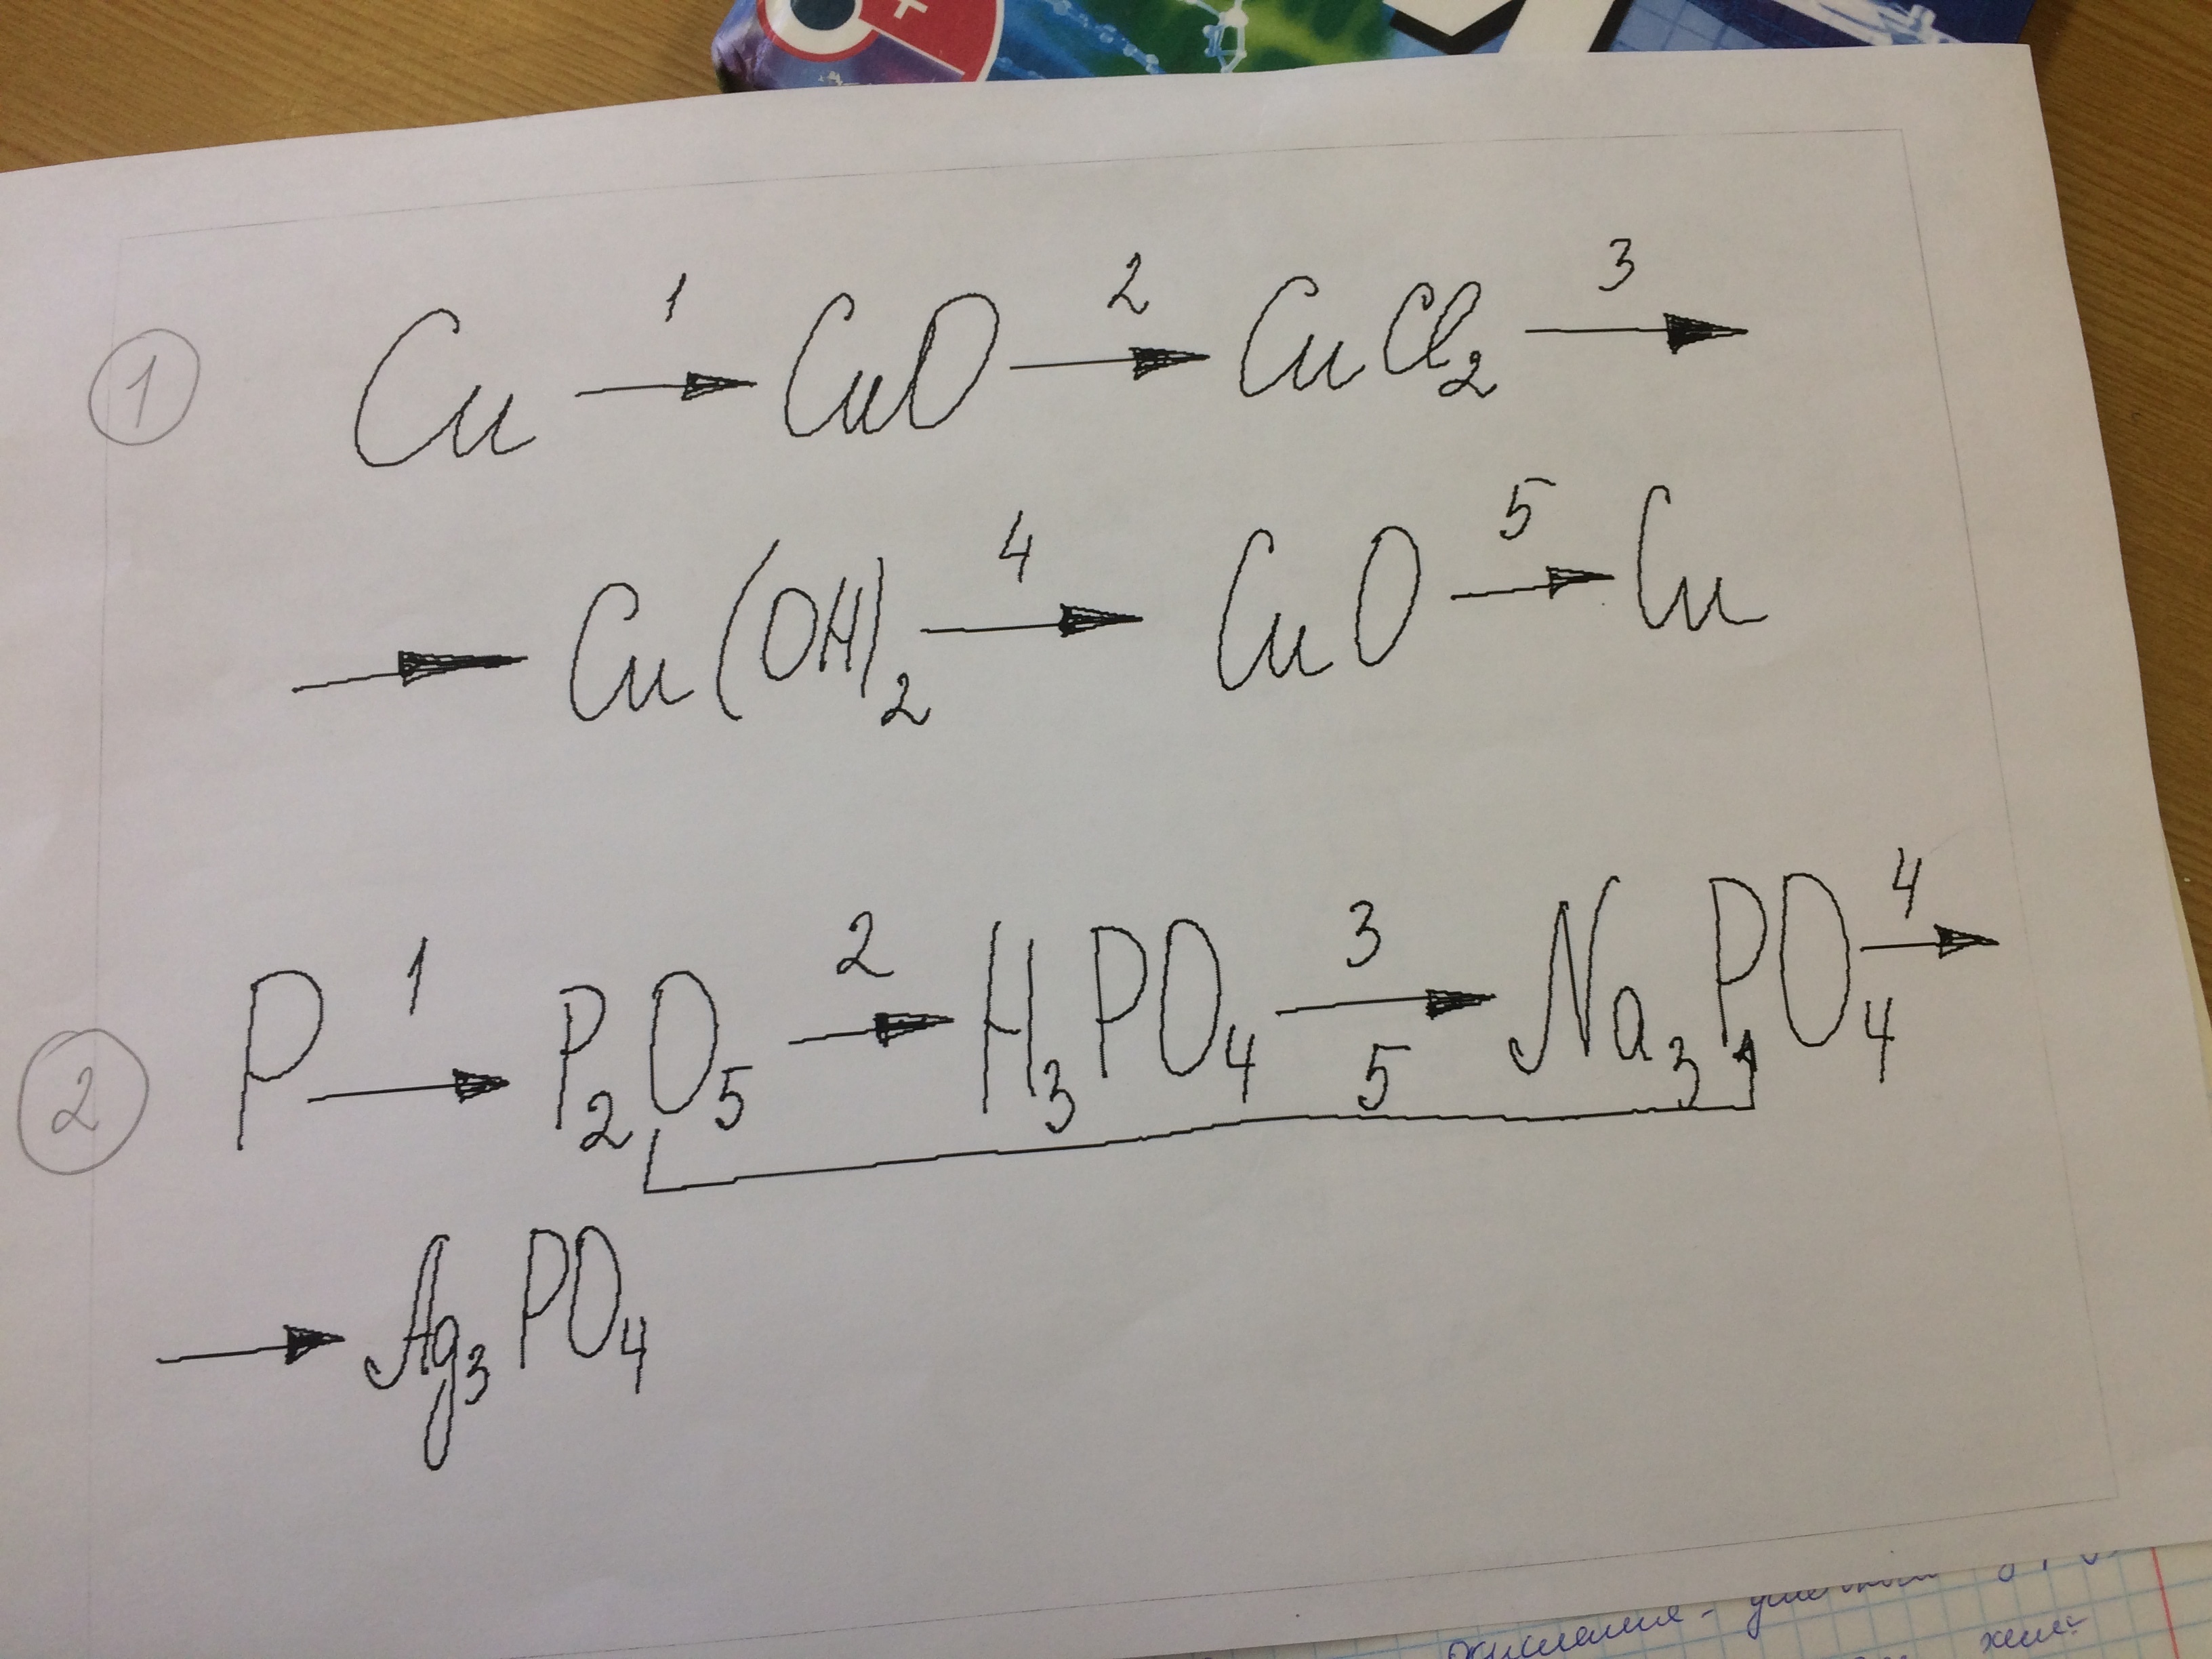 1 Cu 1→ CuO 2→ CuCl₂ 3→
→ Cu(OH)₂ 4→ CuO 5→ Cu
2 P 1→ P₂O₅ 2→ H₃PO₄ 3→ Na₃PO₄ 4→
5
→ Ag₃PO₄